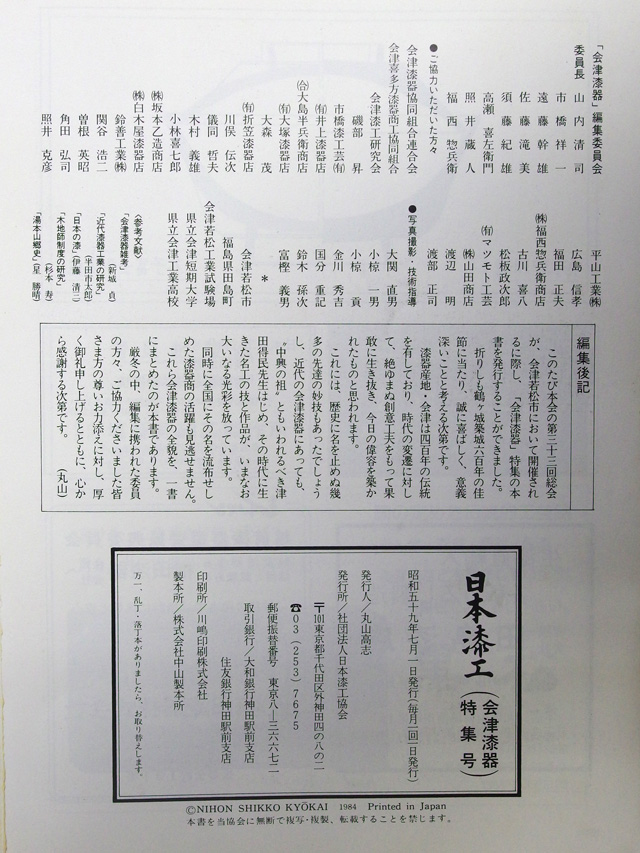 「会津漆器」編集委員会
委員長　山内清司
市橋祥一
遠藤幹雄
佐藤滝美
須藤紀雄
高瀬喜左衛門
照井蔵人
福西惣兵衛
●ご協力いただいた方々
会津漆器協同組合連合会
会津喜多方漆器商工協同組合
会津漆工研究会
磯部昇
市橋漆工㈲
㈲井上漆器店
㈾大島半兵衛商店
㈲大塚漆器店
大森茂
㈲折笠漆器店
川俣伝次
儀同哲夫
木村義雄
小林喜七郎
㈱坂本乙造商店
㈱白木屋漆器店
鈴善工業㈱
関谷浩二
曽根英昭
角田弘司
照井克彦
平山工業㈱
広島信孝
福田正夫
㈱福西惣兵衛商店
古川喜八
松板政次郎
㈲マツモト工芸
㈱山田商店
渡辺明
渡部正司
●写真撮影・技術指導
大関直男
小椋一男
小椋貢
金川秀吉
国分重記
鈴木孫次
富樫義男
＊
会津若松市
福島県田島町
会津若松工業試験場
県立会津短期大学
県立会津工業高校
〈参考文献〉
「会津漆器雑考」（新城貞）
「近代漆器工業の研究」（半田市太郎）
「日本の漆」（伊藤清三）
「木地師制度の研究」（杉本寿）
「湯本山郷史」（星勝晴）
編集後記
このたび本会の第三十三回総会
が、会津若松市において開催され
るに際し、「会津漆器」特集の本
書を発行することができました。
折りしも鶴ヶ城築城六百年の佳
節に当たり、誠に喜ばしく、意義
深いことと考える次第です。
漆器産地・会津は四百年の伝統
を有しており、時代の変遷に対し
て、絶ゆまぬ創意工夫をもって果
敢に生き抜き、今日の偉容を築か
れたものと思われます。
これには、歴史に名を止めぬ幾
多の先達の妙技もあったでしょう
し、近代の会津漆器にあっても、
〝中興の祖〟ともいわれるべき津
田得民先生はじめ、その時代に生
きた名工の技と作品が、いまなお
大いなる光彩を放っています。
同時に全国にその名を流布せし
めた漆器商の活躍も見逃せません。
これら会津漆器の全貌を、一書
にまとめたのが本書であります。
厳冬の中、編集に携われた委員
の方々、ご協力くださいました皆
さま方の尊いお力添えに対し、厚
く御礼申し上げるとともに、心か
ら感謝する次第です。　（丸山）
日本漆工（会津漆器特集号）
昭和五十九年七月一日発行（毎月一回一日発行）
発行人／丸山高志
発行所／社団法人日本漆工協会
〒101東京都千代田区外神田四の八の二
☎03（253）7675
郵便振替番号　東京八―三六六七二
取引銀行／大和銀行神田駅前支店
住友銀行神田駅前支店
印刷所／川嶋印刷株式会社
製本所／株式会社中山製本所
万一、乱丁・落丁本がありましたら、お取り替えします。
©NIHON SHIKKO KYŌKAI　1984　Printed in Japan
本書を当協会に無断で複写・複製、転載することを禁じます。